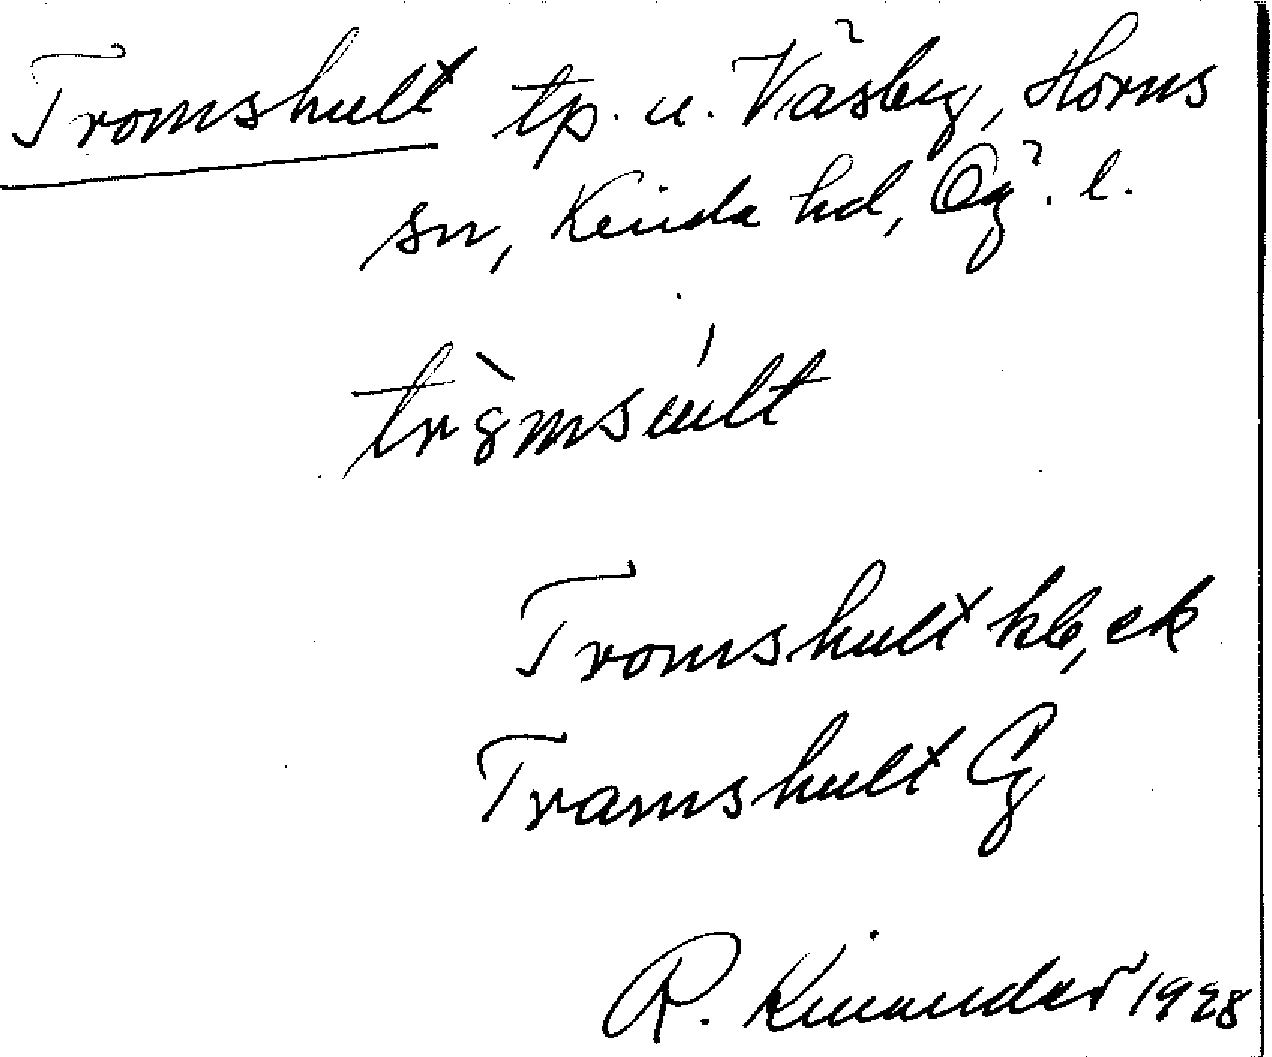 Tromshult tp. u. Väsby, Horns
sn, Kinda hd, Ög. l.
tr8̀msúlt
Tromshult hb, ek
Tramshult Cg
R. Kinander 1928